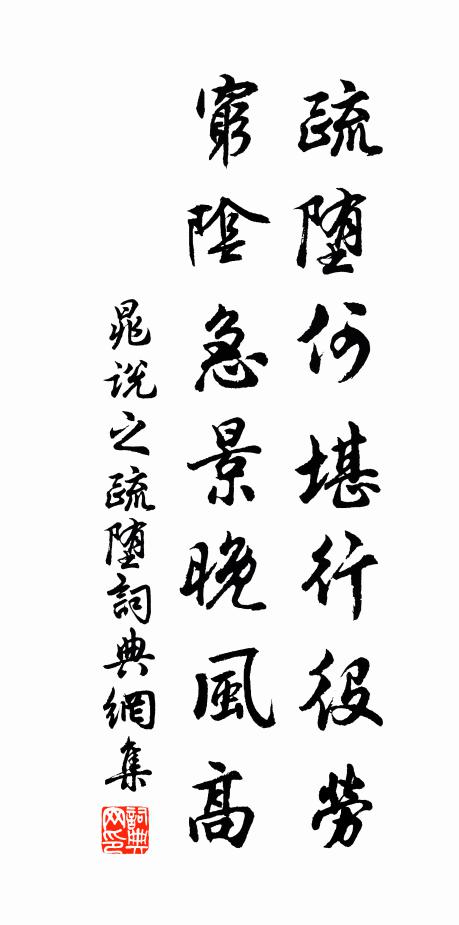 疏堕何堪行役勞
窮陰急景晚風高
晁說之疏堕詞典網集
詞典网印